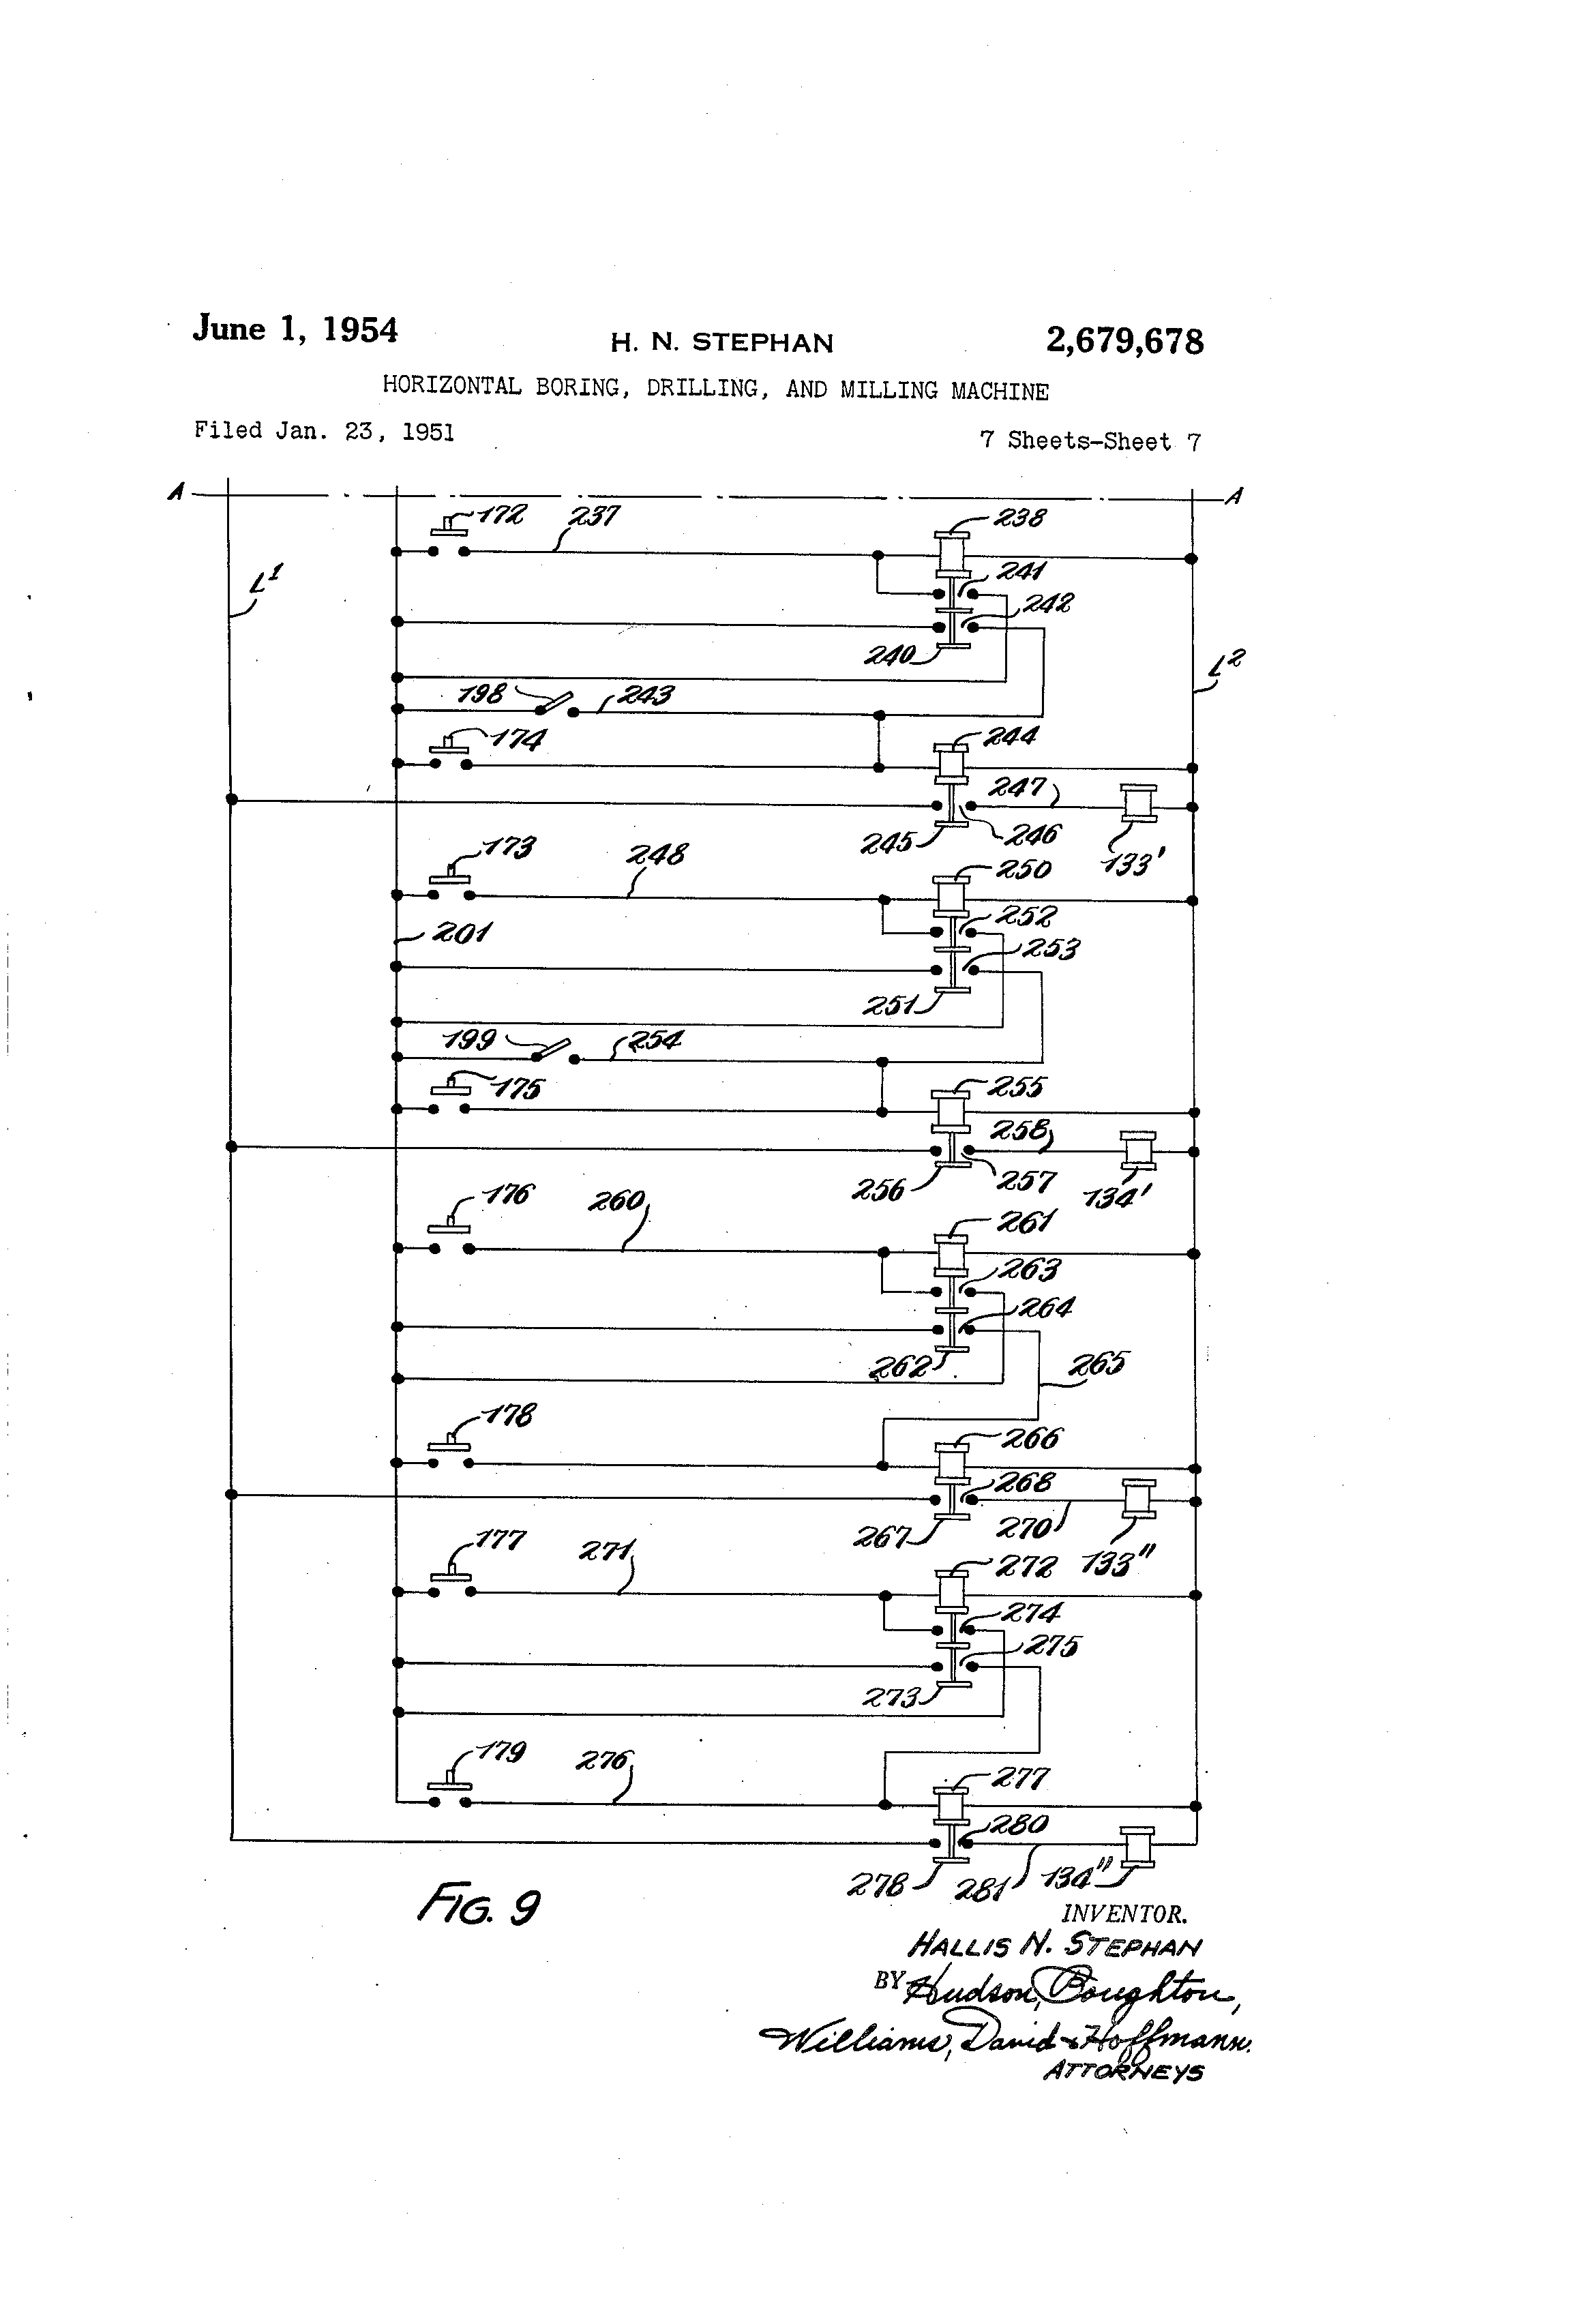 June 1, 1954
H. N. STEPHAN
2,679,678
HORIZONTAL BORING, DRILLING, AND MILLING MACHINE
Filed Jan. 23, 1951
7 Sheets-Sheet 7
A
A
172
237
238
L1
241
242
240
L2
198
243
174
244
247
245
246
133'
173
248
250
201
252
253
251
199
254
175
255
258
256
257
134'
176
260
261
263
264
262
265
178
266
268
267
270
133"
177
271
272
274
275
273
179
276
277
280
278
281
134"
FIG. 9
INVENTOR.
HALLIS N. STEPHAN
BY Hudson, Boughton,
Williams, David & Hoffmann.
ATTORNEYS